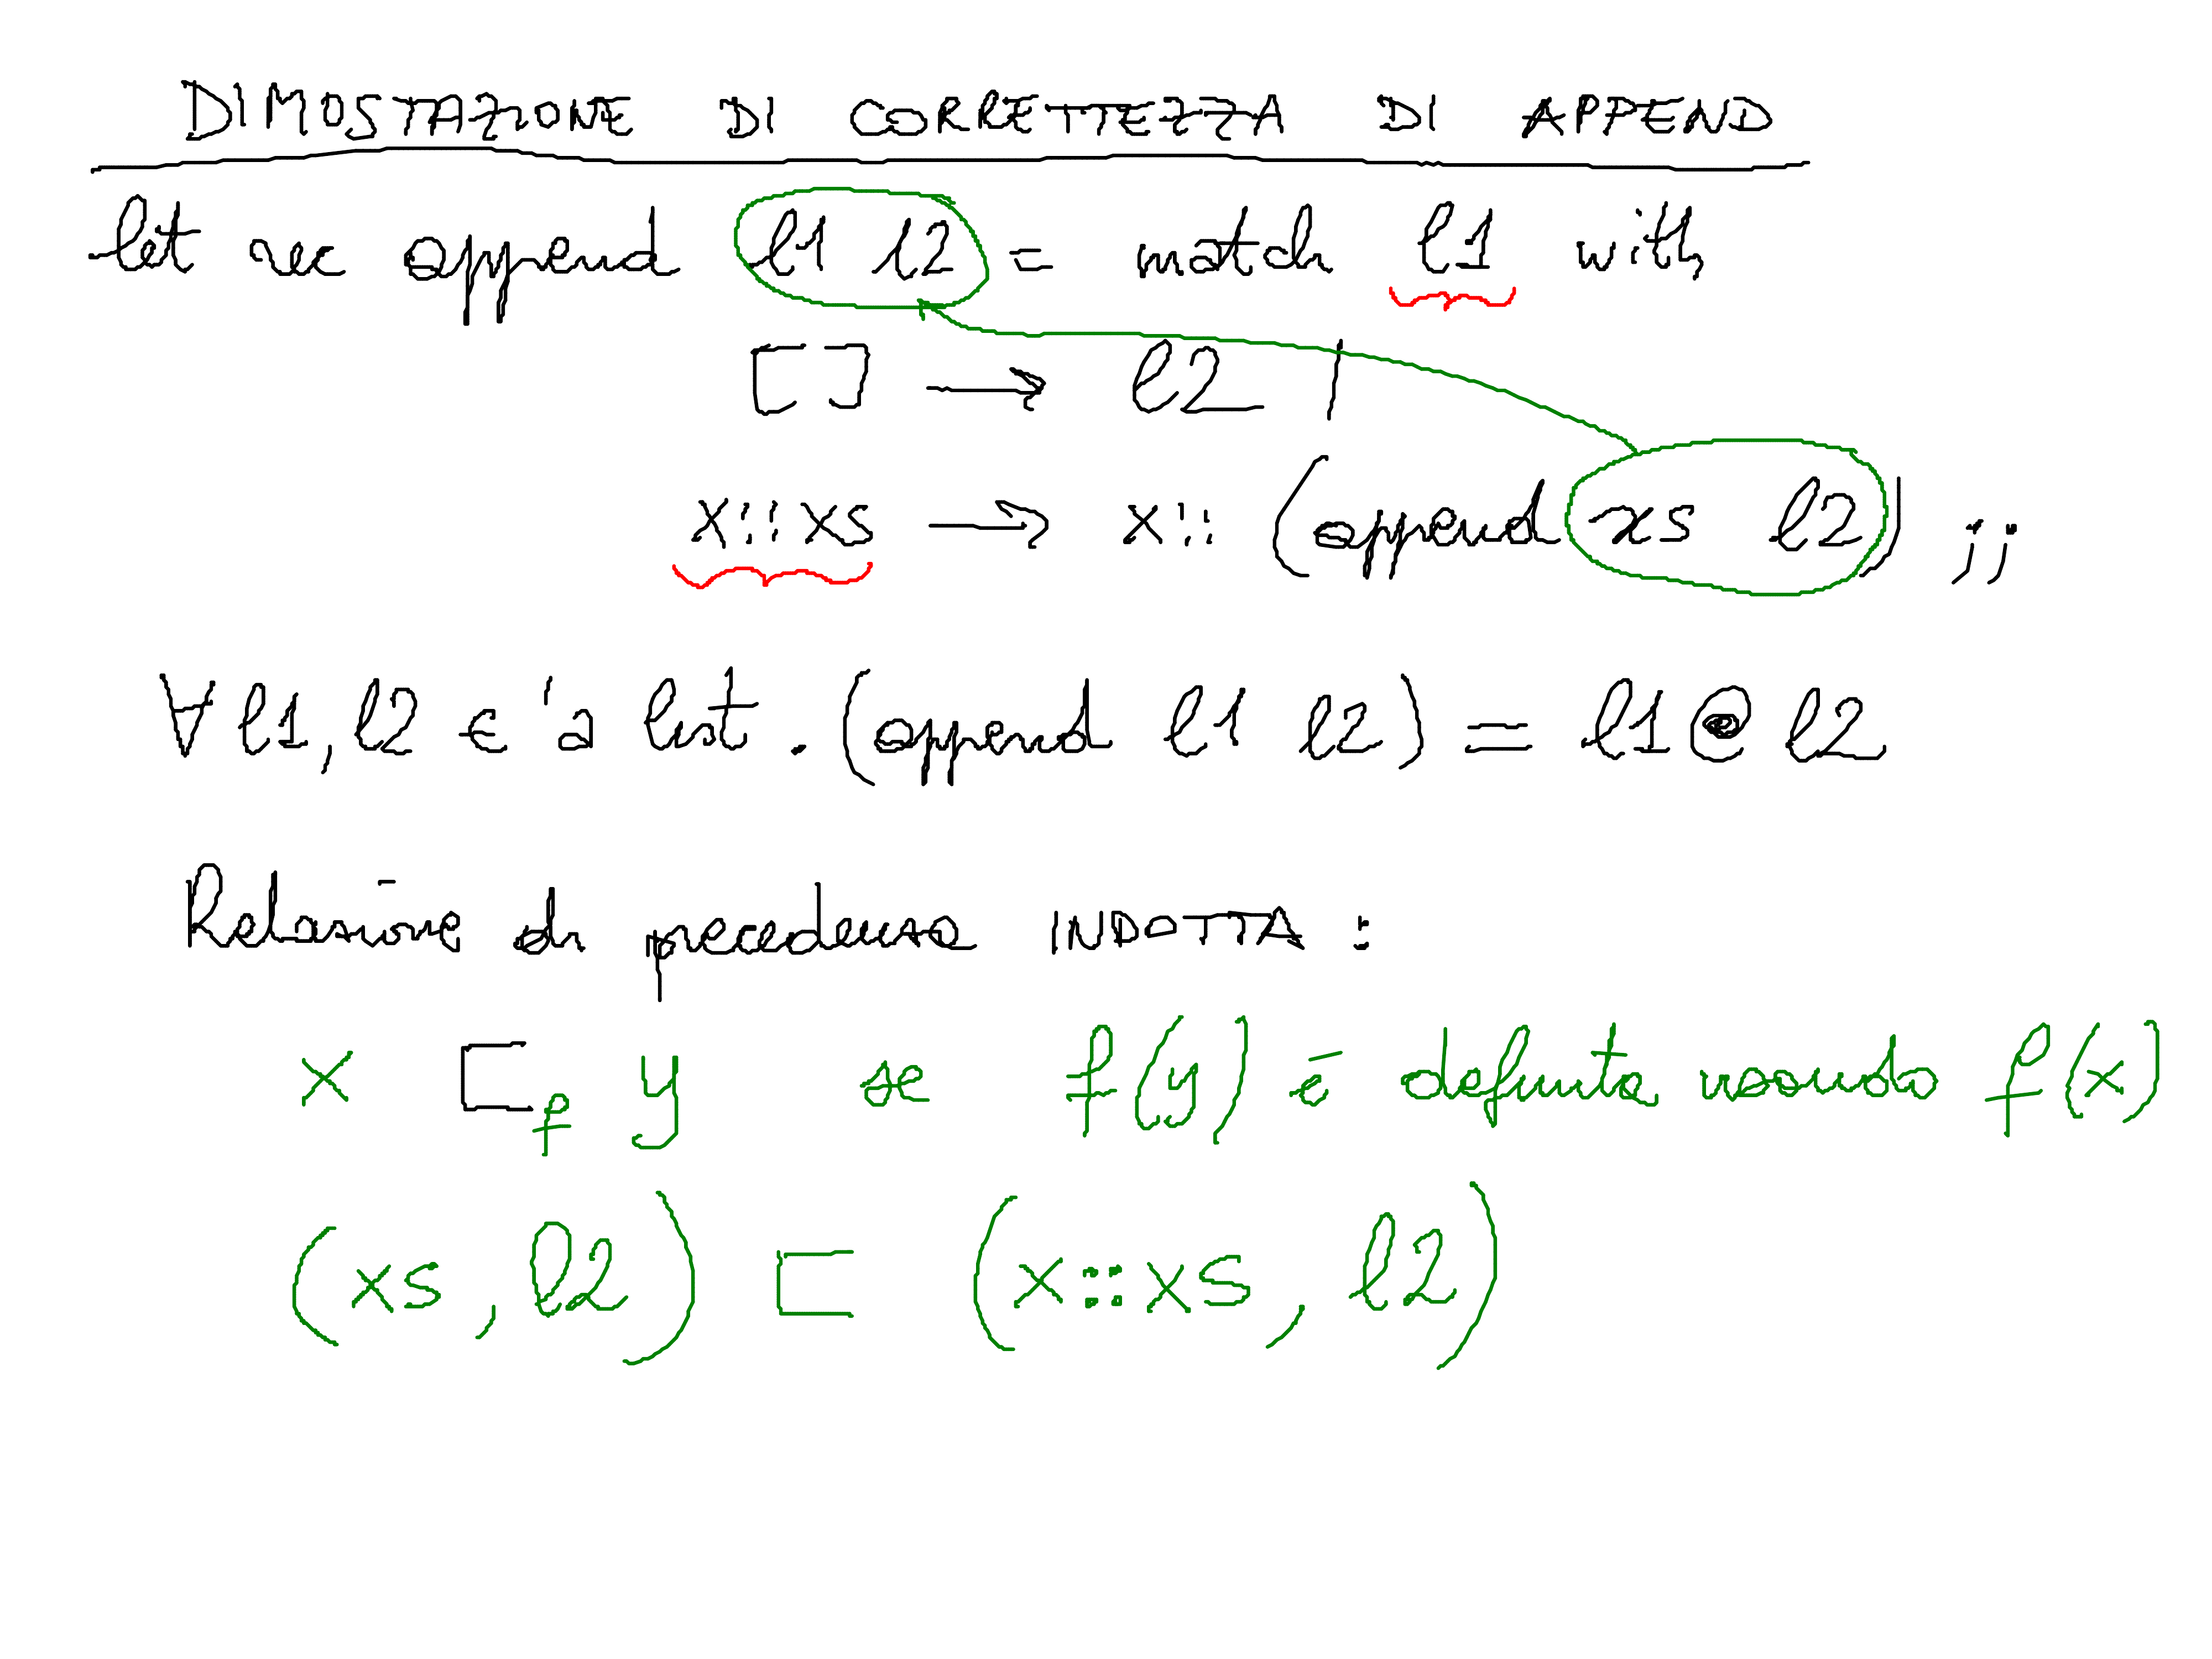 DIMOSTRAZIONE DI CORRETTEZZA DI APPEND
let rec append l1 l2 = match l1 with
[] → l2 |
x::xs → x:: (append xs l2) ;;
∀ l1, l2 ∈ 'a list . (append l1 l2) = l1 @ l2
Relazione di precedenza INDOTTA :
x ⊏f y se f(y) è definita usando f(x)
(xs, l2) ⊏ (x::xs, l2)